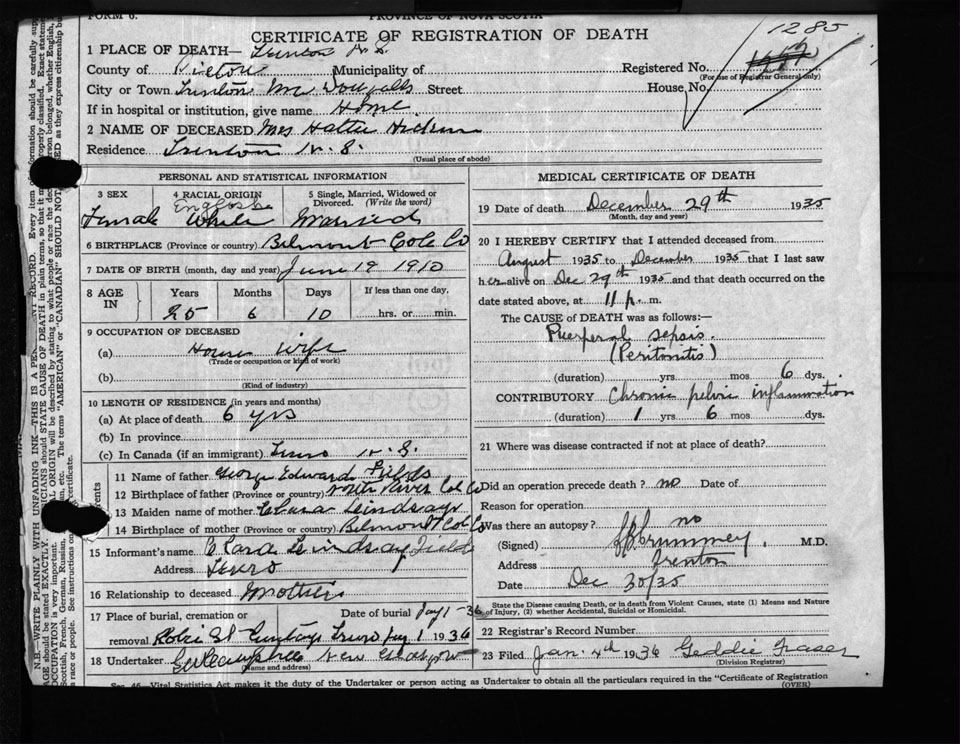 FORM 6.
PROVINCE OF NOVA SCOTIA
1285
CERTIFICATE OF REGISTRATION OF DEATH
1 PLACE OF DEATH— Trenton N.S.
County of Pictou Municipality of
Registered No.
(For use of Registrar General only)
City or Town Trenton Street
House No.
If in hospital or institution, give name Home
2 NAME OF DECEASED Mrs Hattie
Residence Trenton N.S.
(Usual place of abode)
PERSONAL AND STATISTICAL INFORMATION
3 SEX
4 RACIAL ORIGIN
5 Single, Married, Widowed or Divorced. (Write the word)
English
Female White Married
6 BIRTHPLACE (Province or country) Belmont Col. Co
7 DATE OF BIRTH (month, day and year) June 19 1910
8 AGE IN
Years Months Days If less than one day,
25 6 10 hrs. or min.
9 OCCUPATION OF DECEASED
(a) House wife
(Trade or occupation or kind of work)
(b)
(Kind of industry)
10 LENGTH OF RESIDENCE (in years and months)
(a) At place of death 6 yrs
(b) In province
(c) In Canada (if an immigrant) Truro N.S.
11 Name of father George Edward Fields
12 Birthplace of father (Province or country) North River Col Co
13 Maiden name of mother Clara Lindsay
14 Birthplace of mother (Province or country) Belmont Col Co
15 Informant's name Clara Lindsay Fields
Address Truro
16 Relationship to deceased Mother
17 Place of burial, cremation or
Date of burial Jany 1-36
removal Robie St Truro Jany 1 1936
18 Undertaker New Glasgow
(Name and address)
MEDICAL CERTIFICATE OF DEATH
19 Date of death December 29th 1935
(Month, day and year)
20 I HEREBY CERTIFY that I attended deceased from
August 1935 to December 1935 that I last saw
her alive on Dec 29th 1935 and that death occurred on the
date stated above, at 11 p. m.
The CAUSE OF DEATH was as follows:—
Puerperal sepsis.
(Peritonitis)
(duration) yrs mos 6 dys.
CONTRIBUTORY Chronic pelvic inflammation
(duration) 1 yrs 6 mos. dys.
21 Where was disease contracted if not at place of death?
Did an operation precede death? no Date of
Reason for operation
Was there an autopsy? no
(Signed) Crummey, M.D.
Address Trenton
Date Dec 30/35
State the Disease causing Death, or in death from Violent Causes, state (1) Means and Nature
of Injury, (2) whether Accidental, Suicidal or Homicidal.
22 Registrar's Record Number
23 Filed Jan. 4th 1936 Geddie Fraser
(Division Registrar)
Sec. 46. Vital Statistics Act makes it the duty of the Undertaker or person acting as Undertaker to obtain all the particulars required in the "Certificate of Registration
(OVER)